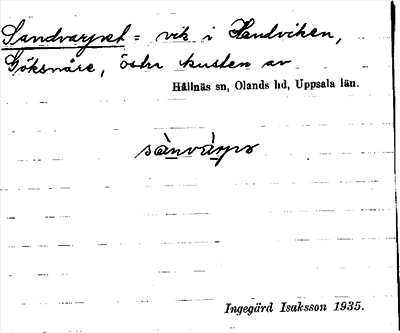 Sandvarpet = vik i Sandviken,
Göksnåre, östra kusten av
Hållnäs sn, Olands hd, Uppsala län.
Ingegärd Isaksson 1935.